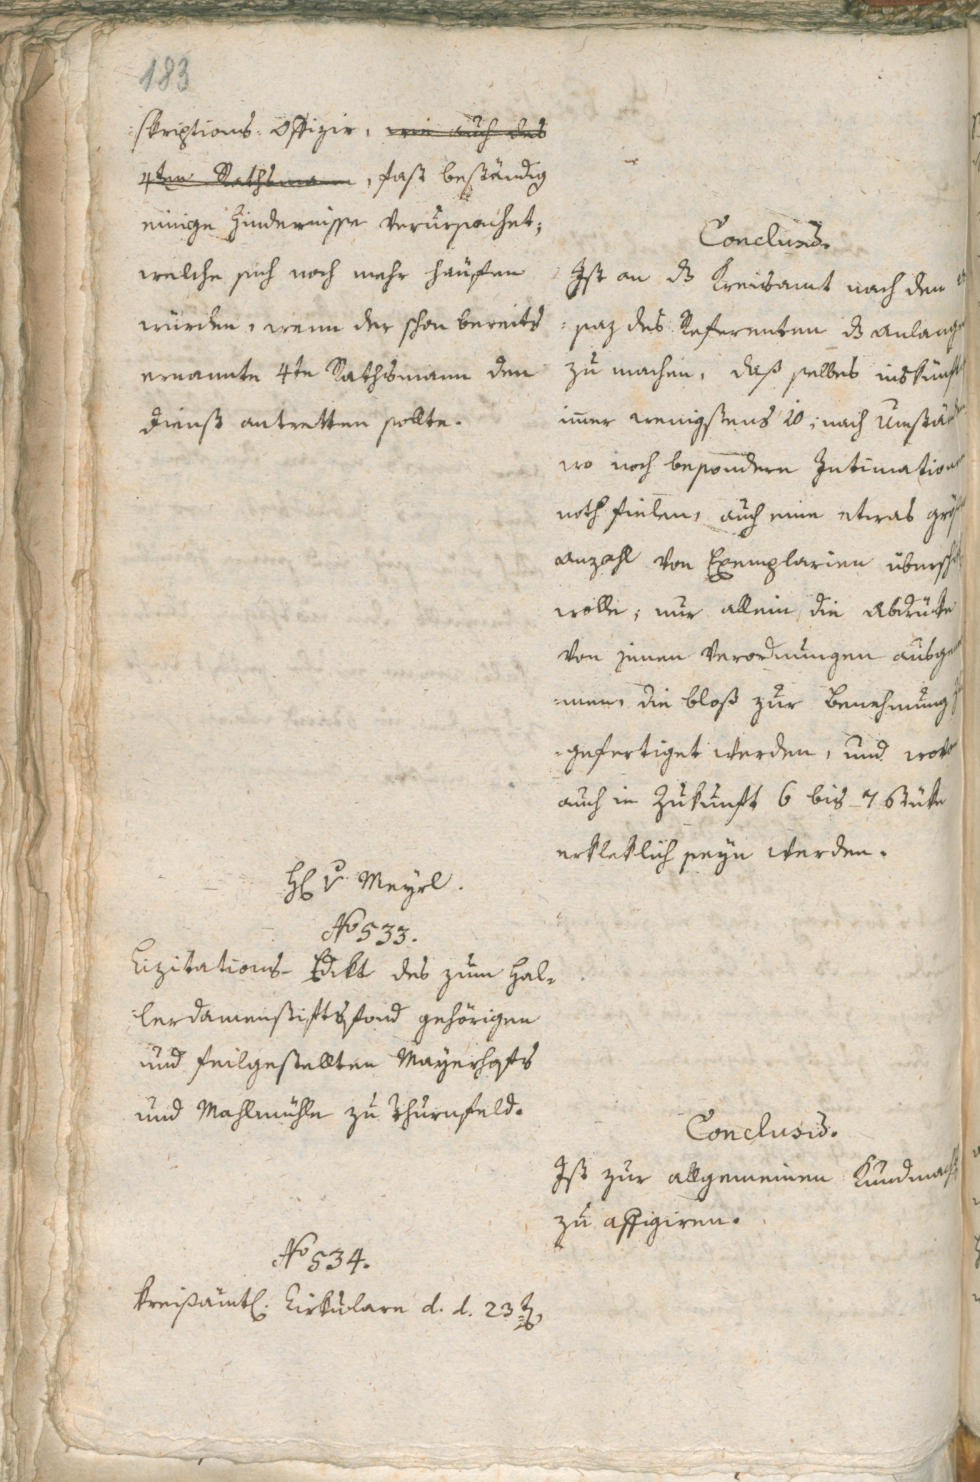 183
skriptions-Offizir, wie auch des
4ten Rathsmann, fast beständig
einige Hindernisse verursachet;
welche sich noch mehr häuffen
würden, wenn der schon bereits
ernannte 4te Rathsmann den
Dienst antretten sollte.
Conclusū.
Ist an d Kreisamt nach dem
saz des Referenten d Anlangen
zu machen, daß selbes inskünft
im̄er wenigstens 10, nach Umstän
wo noch besondere Intimation
noth fielen, auch eine etwas grös
Anzahl von Exemplarien übersch
wolle; nur allein die Abdrüke
von jenen Verordnungen ausge
men, die bloß zur Benehmung
gefertiget werden, und wo
auch in Zukunft 6 bis 7 Stüke
erkleklich seyn werden.
H v Meyrl.
No 533.
Lizitations-Edikt des zum Hal-
lerdamenstiftsfond gehörigen
und feilgestellten Mayerhofs
und Mahlmühle zu Thurnfeld.
Conclusū.
Ist zur allgemeinen Kundmach
zu affigiren.
No 534.
Kreißämtl. Cirkulare d. d. 23